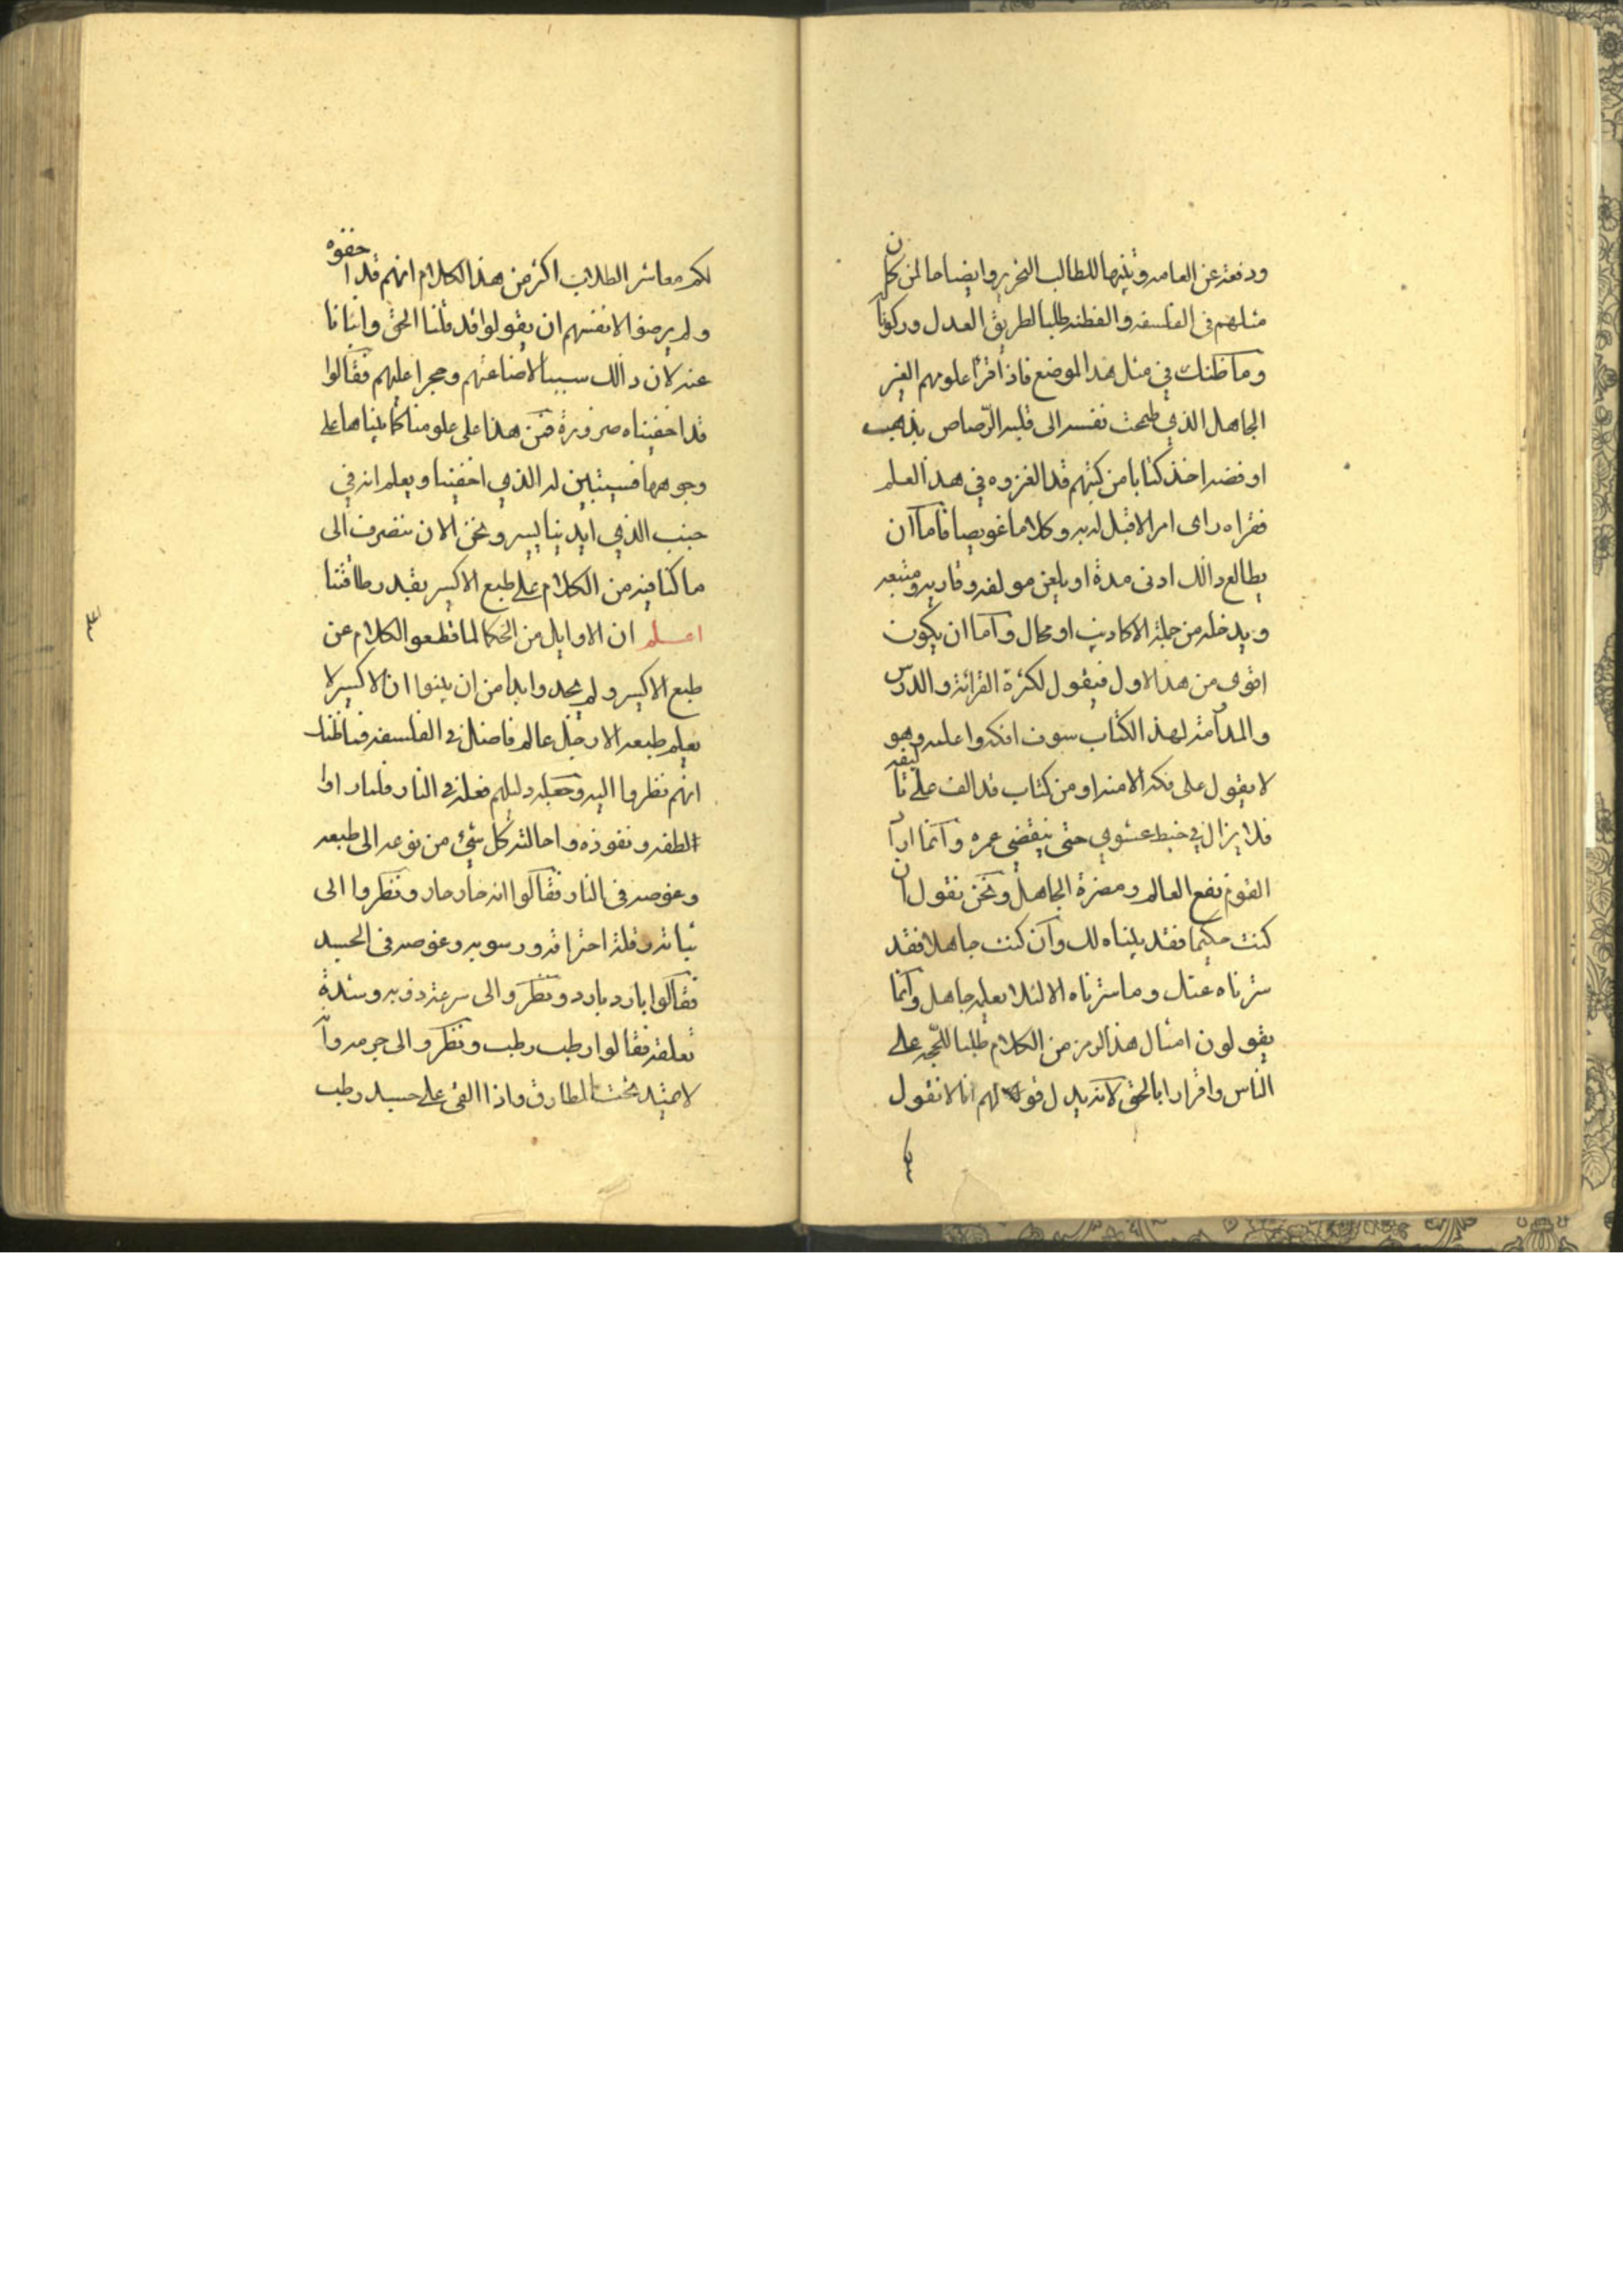 ودفعة عن العامه وتنبيها للطالب النحرير وايضاحا لمن كان
مثلهم فى الفلسفه والفطنه طلبا لطريق العدل وركونا
وما ظنك في مثل هذا الموضع فاذ اقرا علومهم الغير
الجاهل الذي طمحت نفسه الى قلبه الرصاص بذهب
او فضه اخذ كتابا من كتبهم قد الغزوه في هذا العلم
فقراه راى امر الا قبل له به وكلاما غويصا فاما ان
يطالع ذالك ادنى مدة او يلعن مولفه وقاريه ومتبعه
ويدخله من جملة الاكاذيب او محال واما ان يكون
اقوى من هذا الاول فيقول لكثرة القرائة والدرس
والمدامة لهذ الكتاب سوف افكر واعلمه وهو
لا يقول على فكر الامنه او من كتاب قد الف على تاليفه
فلا يزال في خبط عشوي حتى ينقضي عمره وانما ارا
القوم نفع العالم ومضرة الجاهل ونحن نقول ان
كنت حكيما فقد بيناه لك وان كنت جاهلا فقد
سترناه عنك وما سترناه الا لئلا يعلمه جاهل وانما
يقولون امثال هذ الرمز من الكلام طلبا للحجه على
الناس واقرارا بالحق لانه يدل قوله لهم انا لا نقول
لكم معاشر الطلاب اكثر من هذا الكلام انهم قد اخفوه
ولم يرضوا لانفسهم ان يقولوا قد قلنا الحق وابنانا
عنه لان ذالك سببا لاضاعتهم وحجرا عليهم فقالوا
قد اخفيناه ضرورة فمن هذا على علومنا كما بيناها على
وجوهها فسيتبين له الذي اخفينا ويعلم انه في
جنب الذي ابدينا يسير ونحن الان ننصرف الى
ما كنا فيه من الكلام على طبع الاكسير بقدر طاقتنا
اعلم ان الاوايل من الحكما لما قطعو الكلام عن
طبع الاكسير ولم يجدوا بدا من ان يبنوا ان الاكسير لا
يعلم طبعه الا رجل عالم فاضل في الفلسفه فما ظنك
انهم نظروا اليه وجعله دليلهم فعله في النار فلما راوا
لطفه ونفوذه واحالته كل شيء من نوعه الى طبعه
وغوصه فى النار فقالوا انه حار حار ونظروا الى
ثباته وقلة احتراقه ورسوبه وغوصه فى الجسد
فقالوا بارد بارد ونظروا الى سرعة ذوبه وشدة
تعلقه فقالوا رطب رطب ونظروا الى جرمه وانه
لا يمتد تحت المطارق واذا القى على جسد رطب